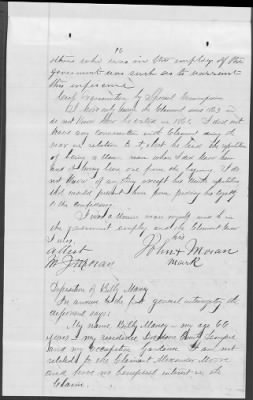 16
others who was in the employ of the
government was such as to warrant
this inference
Cross examination by Special Commissioner
I have only known the Claimant since 1863 I
do not know how he voted in 1861. I did not
have any conversation with Claimant during the
war in relation to it, but he had the reputation
of being a Union man when I did know him
and of having been one from the beginning. I do
not know of any except his Union reputation
that would prevent him from proving his loyalty
to the confederacy.
I was a Union man myself and was in
the government employ and the Claimant knew
I was.
his
Attest John X Moran
mark
Deposition of Billy Maney
In answer to the first general interrogatory the
deponent says:
My name Billy Maney – my age 60
years – my residence Davidson County Tennessee
and my occupation Gardener. I am not
related to the Claimant Alexander Moore
and have no beneficial interest in the
Claim.